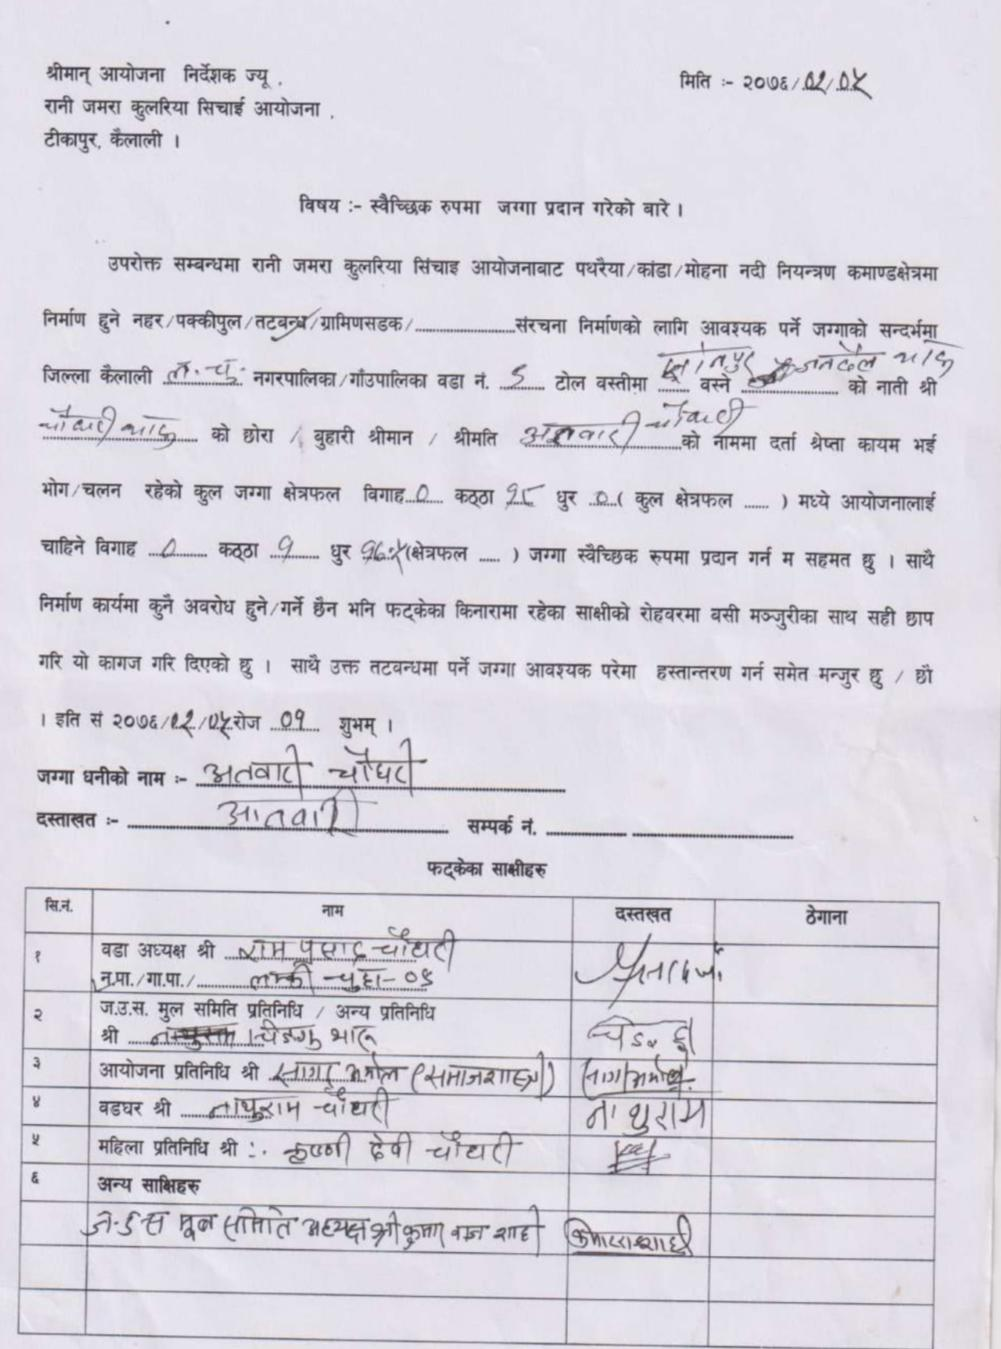 श्रीमान् आयोजना निर्देशक ज्यू .
मिति :- २०७६/०२/०५
रानी जमरा कुलरिया सिचाई आयोजना .
टीकापुर, कैलाली ।
विषय :- स्वैच्छिक रुपमा जग्गा प्रदान गरेको बारे ।
उपरोक्त सम्बन्धमा रानी जमरा कुलरिया सिंचाइ आयोजनाबाट पथरैया/कांडा/मोहना नदी नियन्त्रण कमाण्डक्षेत्रमा
निर्माण हुने नहर/पक्कीपुल/तटबन्ध/ग्रामिणसडक/....................संरचना निर्माणको लागि आवश्यक पर्ने जग्गाको सन्दर्भमा
जिल्ला कैलाली ल.चु. नगरपालिका/गाँउपालिका वडा नं. ९ टोल वस्तीमा ....... वस्ने .................. को नाती श्री
चौधरी थारु को छोरा / बुहारी श्रीमान / श्रीमति अतवारी चौधरी को नाममा दर्ता श्रेष्ता कायम भई
भोग/चलन रहेको कुल जग्गा क्षेत्रफल विगाह ० कठ्ठा १८ धुर ० ( कुल क्षेत्रफल ...... ) मध्ये आयोजनालाई
चाहिने विगाह ० कठ्ठा १ धुर (क्षेत्रफल ..... ) जग्गा स्वैच्छिक रुपमा प्रदान गर्न म सहमत छु । साथै
निर्माण कार्यमा कुनै अवरोध हुने/गर्ने छैन भनि फट्केका किनारामा रहेका साक्षीको रोहवरमा वसी मञ्जुरीका साथ सही छाप
गरि यो कागज गरि दिएको छु । साथै उक्त तटवन्धमा पर्ने जग्गा आवश्यक परेमा हस्तान्तरण गर्न समेत मन्जुर छु / छौ
। इति सं २०७६/०२/०५ रोज ०१ शुभम् ।
जग्गा धनीको नाम :- अतवारी चौधरी
दस्ताखत :- आतवारी सम्पर्क नं. ..................
फट्केका साक्षीहरु
सि.नं. नाम दस्तखत ठेगाना
१ वडा अध्यक्ष श्री राम प्रसाद चौधरी
न.पा./गा.पा./ लम्की चुहा-०९
२ ज.उ.स. मुल समिति प्रतिनिधि / अन्य प्रतिनिधि
श्री थारु
३ आयोजना प्रतिनिधि श्री सागर (समाजशास्त्री)
४ वडघर श्री नाथुराम चौधरी नाथुराम
५ महिला प्रतिनिधि श्री :. कृष्णी देवी चौधरी
६ अन्य साक्षिहरु
ज.उ.स मूल समिति अध्यक्ष श्री कुमार राज शाही